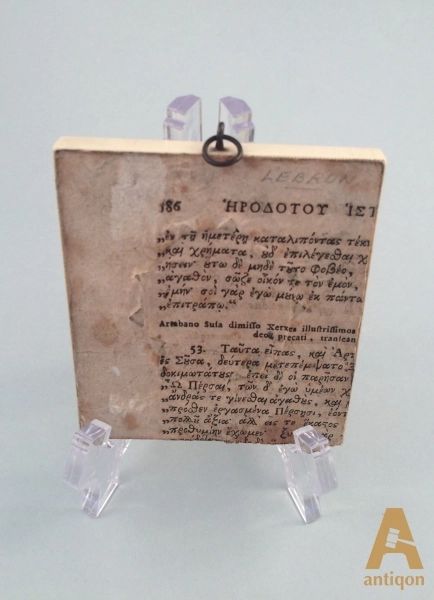 LEBRUN
386 ἩΡΟΔΟΤΟΥ ἹΣΤ
„ἐν τῇ ἡμετέρῃ καταλιπόντας τέκ
„καὶ χρήματα, ὐδ' ἐπιλέγεσθαι χ
„ήσειν· ὕτω δὲ μηδὲ τῦτο φοβέο,
„ἀγαθὸν, σῶζε οἶκόν τε τὸν ἐμὸν,
„ἐμήν· σοὶ γὰρ ἐγὼ μύνῳ ἐκ πάντω
„ἐπιτράπω."
Artabano Susa dimisso Xerxes illustrissimos
deos precati, tranſeant
53. Ταῦτα εἴπας, καὶ Ἀρτ
ἐς Σῦσα, δεύτερα μετεπέμψατο Ξ
δοκιμωτάτυς· ἐπεὶ δέ οἱ παρῆσαν
„Ὦ Πέρσαι, τῶν δ' ἐγὼ ὑμέων χ
„ἄνδρας τε γίνεσθαι ἀγαθὺς, καὶ
„πρόσθεν ἐργασμένα Πέρσῃσι, ἐόντ
„πολλῦ ἄξια· ἀλλ' εἷς τε ἕκαστος
„προθυμίην ἔχωμεν· ξυνὸν γὰρ
antiqon